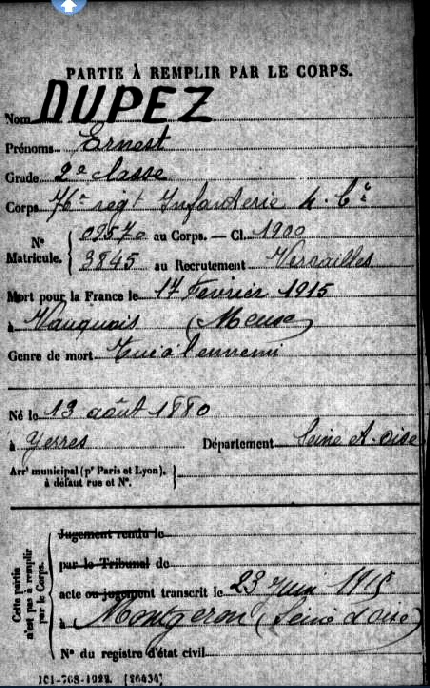 PARTIE À REMPLIR PAR LE CORPS.
Nom DUPEZ
Prénoms Ernest
Grade 2e classe
Corps 76e regt Infanterie 4. Cie
Nº Matricule. 09570 au Corps. — Cl. 1900
3845 au Recrutement Versailles
Mort pour la France le 17 Fevrier 1915
à Vauquois (Meuse)
Genre de mort Tué à l'ennemi
Né le 13 août 1880
à Yerres Département Seine et oise
Arrt municipal (pr Paris et Lyon), à défaut rue et Nº.
Cette partie n'est pas à remplir par le Corps.
Jugement rendu le
par le Tribunal de
acte ou jugement transcrit le 23 1915
à Montgeron (Seine et oise)
Nº du registre d'état civil
101-708-1922. [26434]